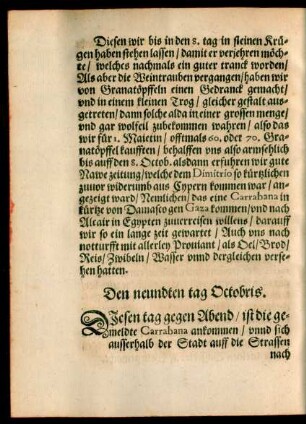 Diesen wir bis in den 8. tag in steinen Krü-
gen haben stehen lassen / damit er verjehren möch-
te / welches nachmals ein guter tranck worden /
Als aber die Weintrauben vergangen / haben wir
von Granatöpffeln einen Gedranck gemacht /
vnd in einem kleinen Trog / gleicher gestalt aus-
getreten / dann solche alda in einer grossen menge /
vnd gar wolfeil zubekommen wahren / also das
wir für 1. Maitin / offtmals 60. odet 70. Gra-
natöpffel kaufften / behalffen vns also armselich
bis auff den 8. Octob. alsdann erfuhren wir gute
Nawe zeitung / welche dem Dimitrio so kürtzlichen
zuuor widerumb aus Cypern kommen war / an-
gezeigt ward / Nemlichen / das eine Carrabana in
kürtze von Damasco gen Gaza kommen / vnd nach
Alcair in Egypten zuuerreisen willens / darauff
wir so ein lange zeit gewartet / Auch vns nach
notturfft mit allerley Prouiant / als Oel / Brod /
Reis / Zwibeln / Wasser vnnd dergleichen verse-
hen hatten.
Den neundten tag Octobris.
DJesen tag gegen Abend / ist die ge-
meldte Carrabana ankommen / vnnd sich
ausserhalb der Stadt auff die Strassen
nach